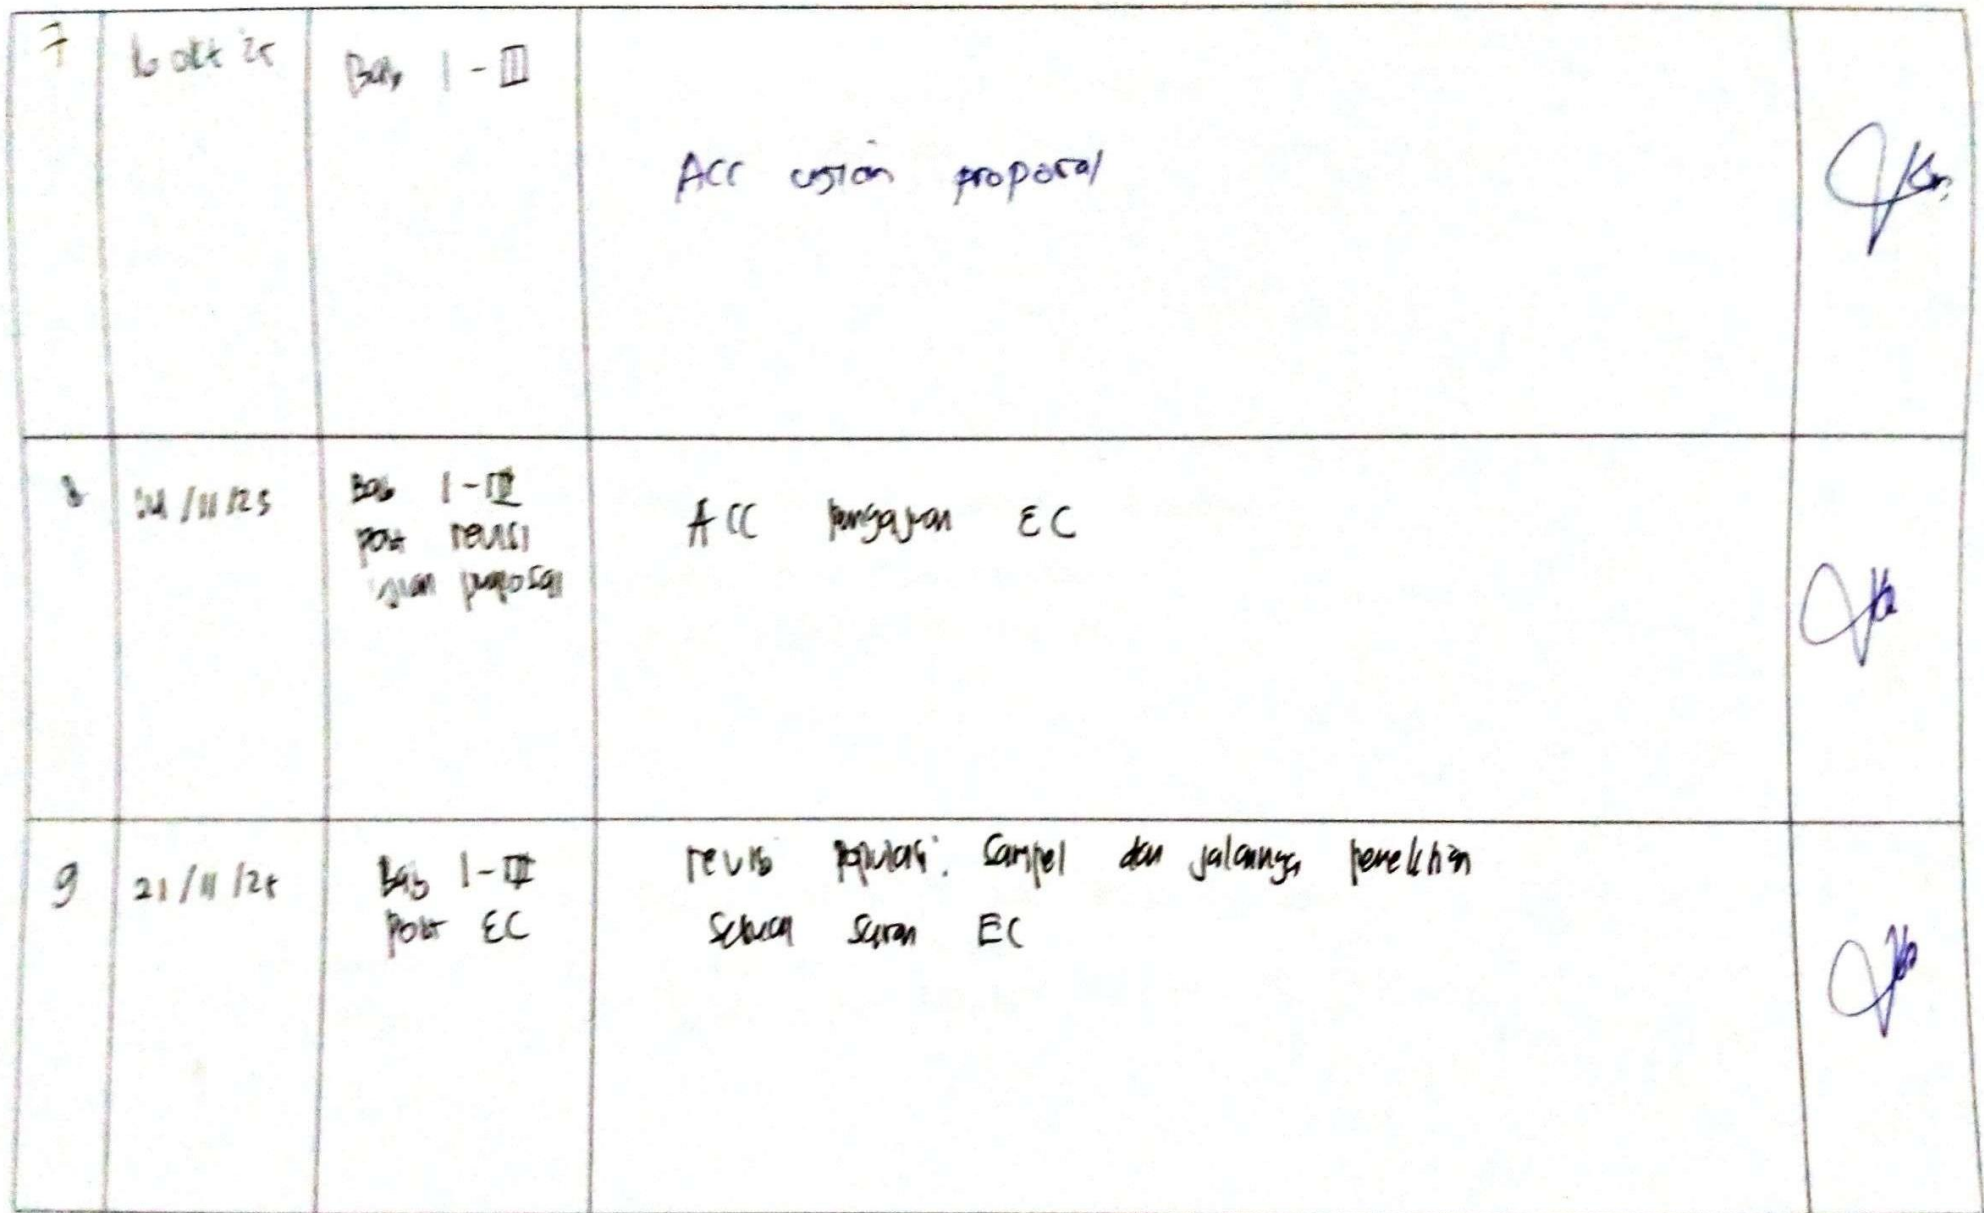 7
16 okt 25
Bab I - III
ACC ujian proposal
8
/11/25
Bab I - III
post revisi
ujian proposal
ACC pengajuan EC
9
21/11/25
Bab I - III
post EC
revisi populasi, sampel dan jalannya penelitian
sesuai saran EC